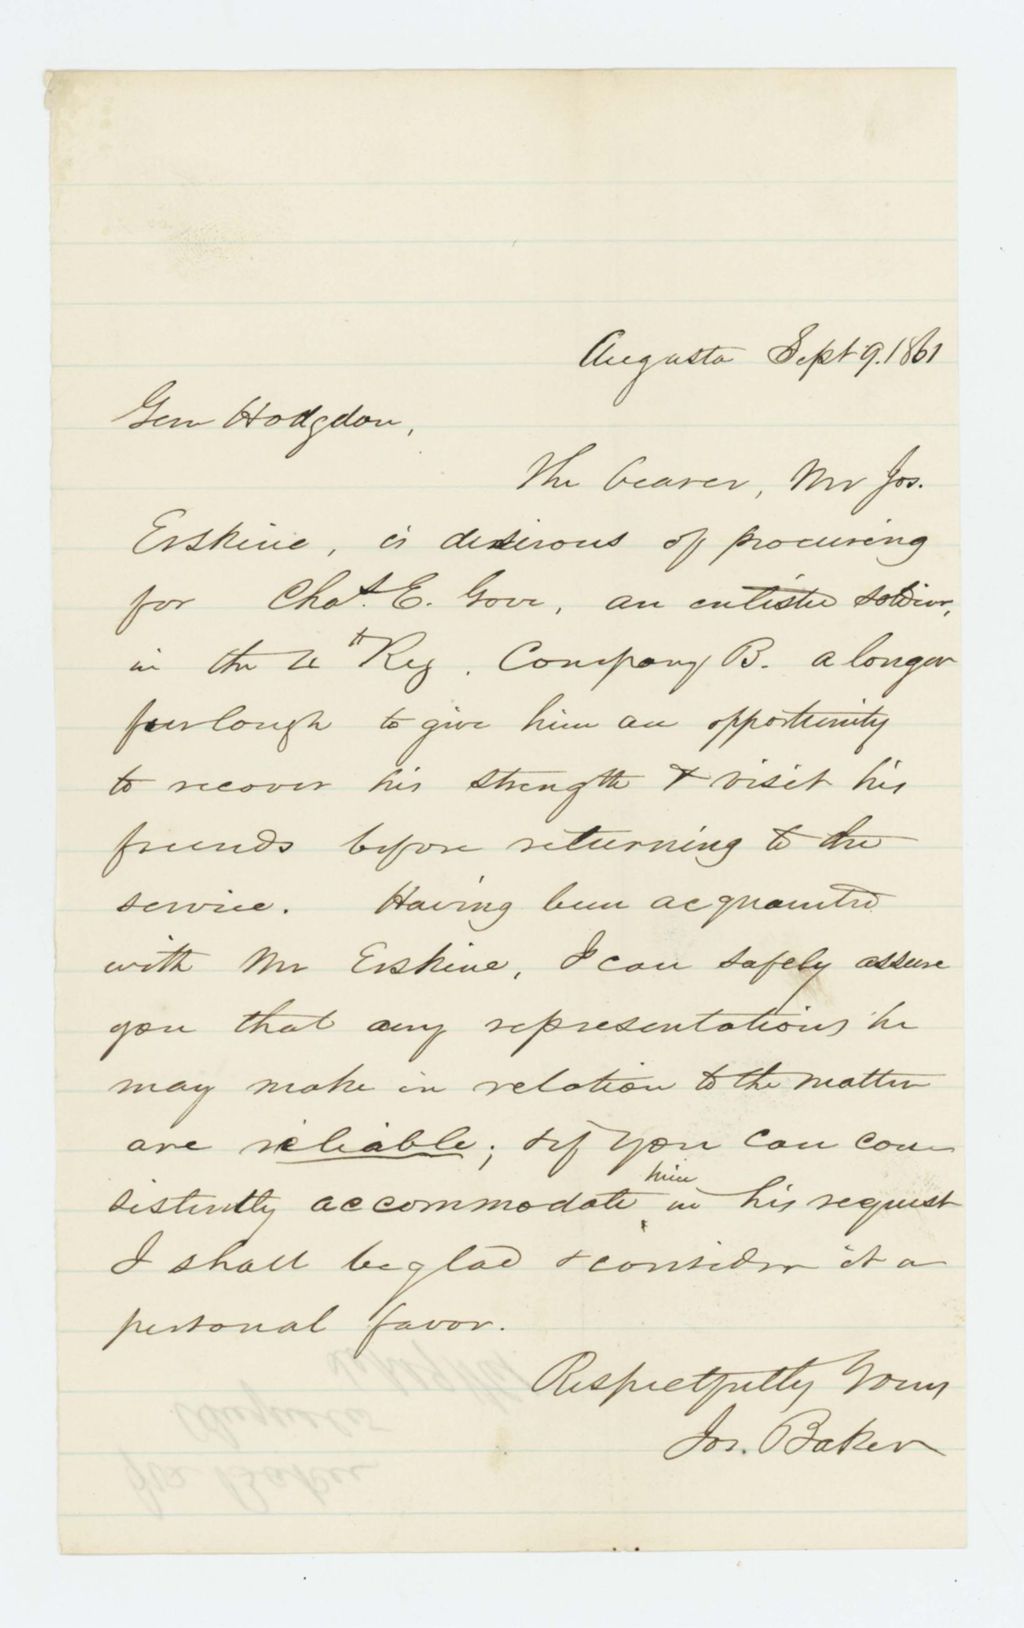 Augusta Sept 9. 1861
Gen Hodgdon,
The bearer, Mr Jos.
Erskine, is desirous of procuring
for Chas. E. Gove, an enlisted soldier,
in the 4th Reg. Company B. a longer
furlough to give him an opportunity
to recover his strength & visit his
friends before returning to the
service. Having been acquainted
with Mr Erskine, I can safely assure
you that any representations he
may make in relation to the matter
are reliable; & if you can con
sistently accommodate him in his request
I shall be glad & consider it a
personal favor.
Respectfully Yours
Jos. Baker
Jos Baker
Augusta